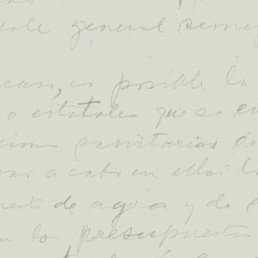 general
es posible la
o estatales que se en
sanitarias de
a cabo en ellas l
de agua y de
los presupuestos